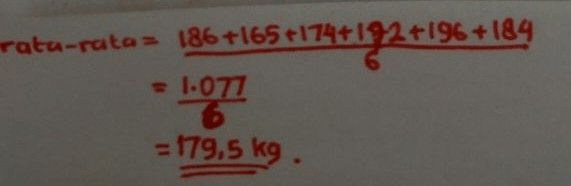 rata-rata = 186+165+174+192+196+184
6
= 1.077
6
= 179,5 kg.